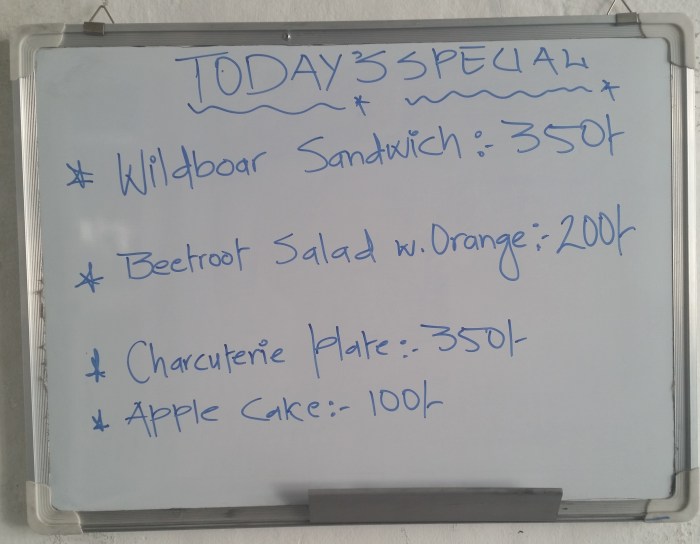 TODAY'S SPECIAL
* Wildboar Sandwich:- 350/-
* Beetroot Salad w. Orange:- 200/-
* Charcuterie plate:- 350/-
* Apple Cake:- 100/-